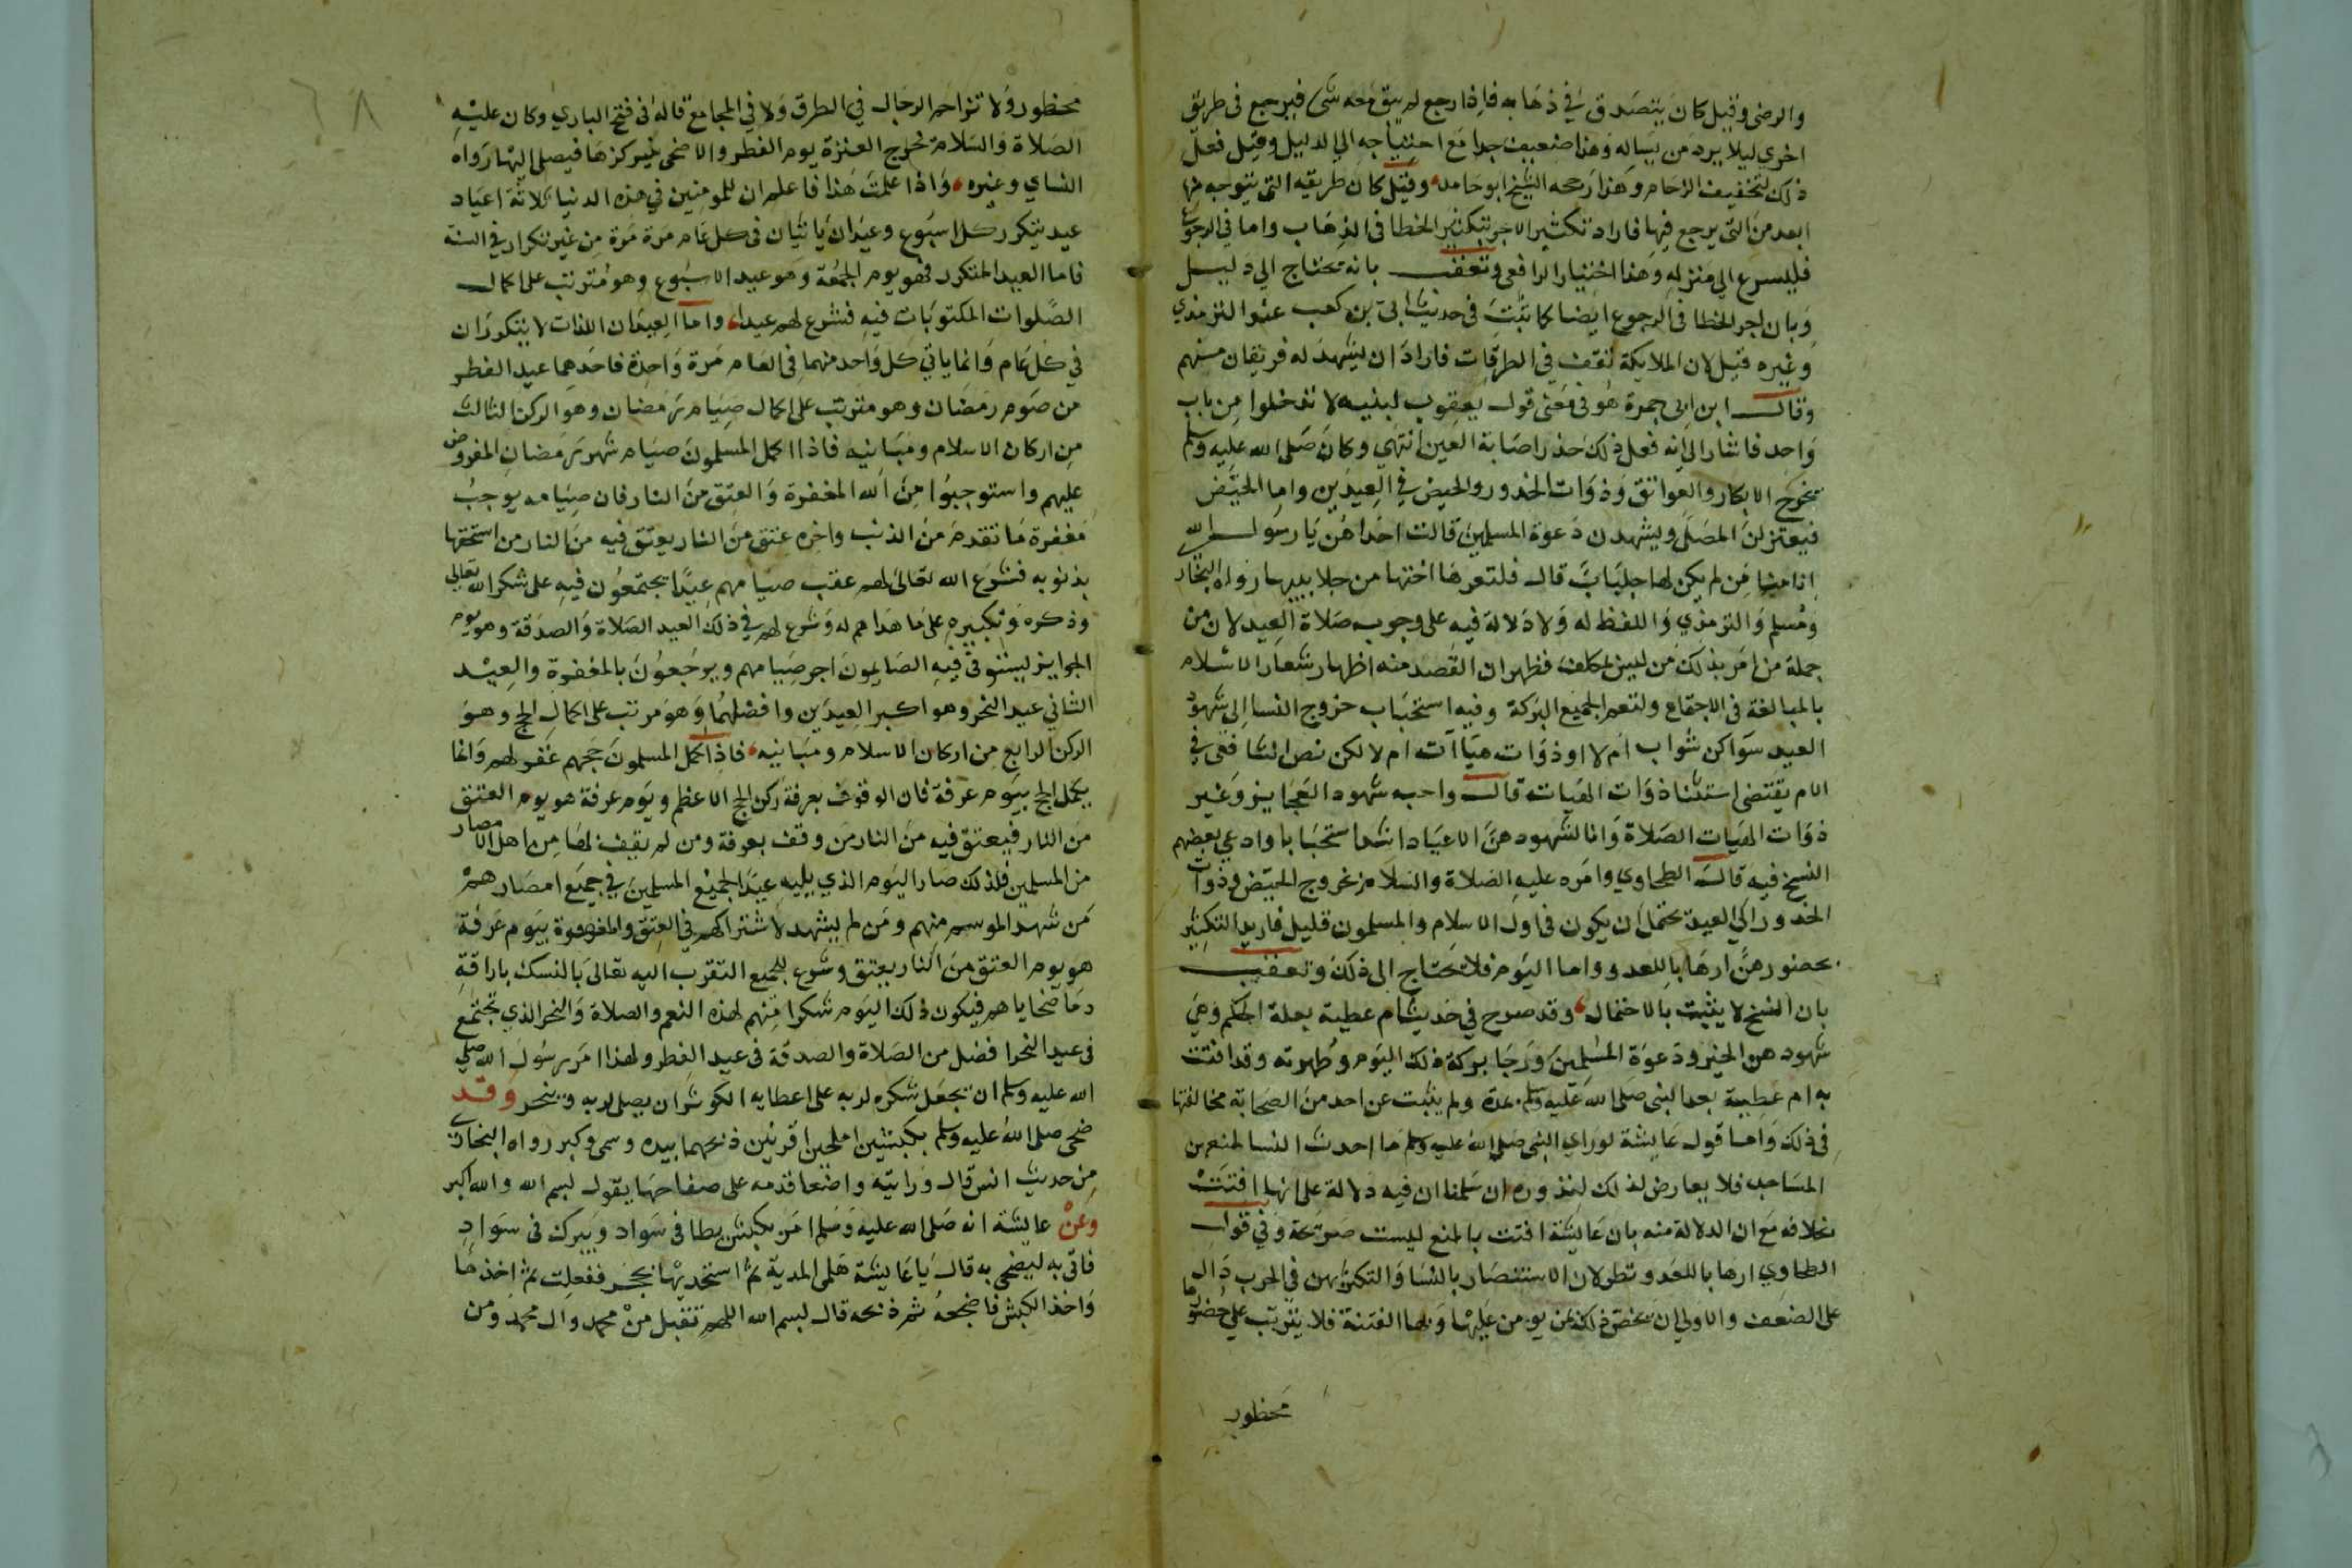 والرضى وقيل كان يتصدق في ذهابه فاذا رجع لم يبق معه شى فيرجع فى طريق
اخري ليلا يرد من يساله وهذا ضعيف جدا مع احتياجه الي الدليل وقيل فعل
ذلك لتخفيف الزحام وهذا رجحه الشيخ ابو حامد وقيل كان طريقه التى يتوجه منها
ابعد من التى يرجع فيها فاراد تكثير الاجر بتكثير الخطا فى الذهاب واما فى الرجوع
فليسرع الي منزله وهذا اختيار الرافعى وتعقب بانه تحتاج الي دليل
وبان اجر الخطا فى الرجوع ايضا كما ثبت فى حديث ابى بن كعب عند الترمذي
وغيره قيل لان الملايكة تقف في الطرقات فاراد ان يشهد له فريقان منهم
وقال ابن ابى جمرة هو فى معنى قول يعقوب لبنيه لا تدخلوا من باب
واحد فاشار الى انه فعل ذلك حذر اصابة العين انتهي وكان صلى الله عليه وسلم
يخرج الابكار والعواتق وذوات الخدور والحيض في العيدين واما الحيض
فيعتزلن المصلى ويشهدن دعوة المسلمين قالت احداهن يا رسول الله
ان لم يكن لها جلباب قال فلتعرها اختها من جلابيبها رواه البخار
ومسلم والترمذي واللفظ له ولا دلالة فيه على وجوب صلاة العيد لان من
جملة من امر بذلك من ليس بمكلف فظهر ان القصد منه اظهار شعار الاسلام
بالمبالغة فى الاجتماع ولتعم الجميع البركة وفيه استحباب خروج النسا الي شهود
العيد سواكن شواب ام لا او ذوات هيات ام لا لكن نص الشافعى في
الام يقتضى استثنا ذوات الهيات قال واحب شهود العجايز وغير
ذوات الهيات الصلاة وانا لشهودهن الاعياد اشد استحبابا وادعي بعضهم
النسخ فيه قال الطحاوي وامره عليه الصلاة والسلام بخروج الحيض وذوات
الخدور الي العيد يحتمل ان يكون فى اول الاسلام والمسلمون قليل فاريد التكثير
بحضورهن ارهابا للعدو واما اليوم فلا يحتاج الى ذلك وتعقب
بان النسخ لا يثبت بالاحتمال وقد صرح في حديث ام عطية بعلة الحكم وهى
شهودهن الخير ودعوة المسلمين ورجا بركة ذلك اليوم وطهرته وقد افتت
به ام عطية بعد النبى صلى الله عليه وسلم بمدة ولم يثبت عن احد من الصحابة مخالفتها
فى ذلك واما قول عايشة لو راي النبى صلى الله عليه وسلم ما احدث النسا لمنعهن
المساجد فلا يعارض ذلك لندوره ان سلمنا ان فيه دلالة على انها افتت
بخلافه مع ان الدلالة منه بان عايشة افتت بالمنع ليست صريحة وفي قول
الطحاوي ارهابا للعدو نظر لان الاستنصار بالنسا والتكثر بهن في الحرب دال
على الضعف والاولي ان يخص ذلك بمن يومن عليها وبها الفتنة فلا يترتب علي حضورها
محظور
محظور ولا تزاحم الرجال في الطرق ولا في المجامع قاله فى فتح الباري وكان عليه
الصلاة والسلام تخرج العنزة يوم الفطر والاضحى يركزها فيصلى اليها رواه
النساي وغيره واذا علمت هذا فاعلم ان للمومنين في هذه الدنيا ثلاثة اعياد
عيد يتكرر كل اسبوع وعيدان ياتيان فى كل عام مرة مرة من غير تكرار في السنة
فاما العيد المتكرر فهو يوم الجمعة وهو عيد الاسبوع وهو مترتب على اكمال
الصلوات المكتوبات فيه فشرع لهم عيدا واما العيدان اللذان لا يتكرران
في كل عام وانما ياتي كل واحد منهما فى العام مرة واحدة فاحدهما عيد الفطر
من صوم رمضان وهو مترتب على اكمال صيام رمضان وهو الركن الثالث
من اركان الاسلام ومبانيه فاذا اكمل المسلمون صيام شهر رمضان المفروض
عليهم واستوجبوا من الله المغفرة والعتق من النار فان صيامه يوجب
مغفرة ما تقدم من الذنب واخره عتق من النار يعتق فيه من النار من استحقها
بذنوبه فشرع الله تعالى لهم عقب صيامهم عيدا يجتمعون فيه على شكر الله تعالي
وذكره وتكبيره على ما هداهم له وشرع لهم في ذلك العيد الصلاة والصدقة وهو يوم
الجوايز يستوفى فيه الصايمون اجر صيامهم ويرجعون بالمغفرة والعيد
الثاني عيد النحر وهو اكبر العيدين وافضلهما وهو مرتب على اكمال الحج وهو
الركن الرابع من اركان الاسلام ومبانيه فاذا اكمل المسلمون حجهم غفر لهم وانما
يكمل الحج بيوم عرفة فان الوقوف بعرفة ركن الحج الاعظم ويوم عرفة هو يوم العتق
من النار فيعتق فيه من النار من وقف بعرفة ومن لم يقف بها من اهل الامصار
من المسلمين فلذلك صار اليوم الذي يليه عيدا لجميع المسلمين في جميع امصارهم
من شهد الموسم منهم ومن لم يشهد لاشتراكهم في العتق والمغفرة بيوم عرفة
هو يوم العتق من النار يعتق وشرع للجميع التقرب اليه تعالى بالنسك باراقة
دما ضحاياهم فيكون ذلك اليوم شكرا منهم لهذه النعم والصلاة والنحر الذي تجتمع
فى عيد النحر افضل من الصلاة والصدقة فى عيد الفطر ولهذا امر رسول الله صلي
الله عليه وسلم ان يجعل شكره لربه على اعطايه الكوثر ان يصلى لربه وينحر وقد
ضحى صلى الله عليه وسلم بكبشين املحين اقرنين ذبحهما بيده وسمى وكبر رواه البخاري
من حديث انس قال ورايته واضعا قدمه على صفاحهما يقول بسم الله والله اكبر
وعن عايشة انه صلى الله عليه وسلم امر بكبش يطا في سواد ويبرك فى سواد
فاتى به ليضحى به قال يا عايشة هلمى المدية ثم استحديها بحجر ففعلت ثم اخذها
واخذ الكبش فاضجعه ثم ذبحه قال بسم الله اللهم تقبل من محمد وال محمد ومن